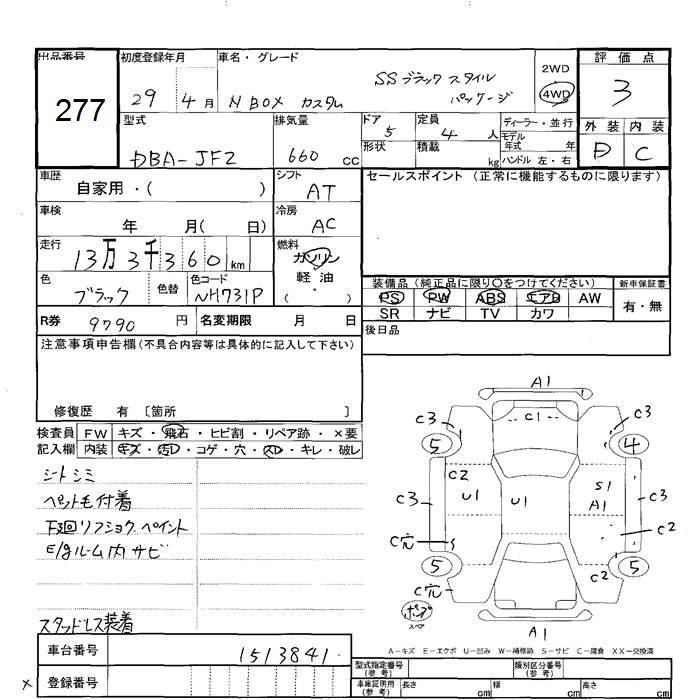 出品番号 初度登録年月 車名・グレード 評価点
277
29 4月 N BOX カスタム SSブラックスタイル パッケージ
2WD
4WD
3
型式 排気量 ドア 定員 ディーラー・並行 外装 内装
DBA-JF2 660 cc 5 4人 モデル年式 年 D C
形状 積載 kg ハンドル 左・右
車歴 シフト セールスポイント (正常に機能するものに限ります)
自家用・( ) AT
車検 冷房
年 月( 日) AC
走行 燃料
13万3千360km ガソリン
軽油
( ・ )
色 色替 色コード
ブラック NH731P
装備品 (純正品に限り○をつけてください) 新車保証書
PS PW ABS エアB AW 有・無
SR ナビ TV カワ
R券 9790 円 名変期限 月 日
後日品
注意事項申告欄(不具合内容等は具体的に記入して下さい)
修復歴 有 〔箇所 〕
検査員 FW キズ・飛石・ヒビ割・リペア跡・×要
記入欄 内装 キズ・汚レ・コゲ・穴・スレ・キレ・破レ
シートシミ
ペット毛付着
下廻リフショク.ペイント
E/gルーム内サビ
スタッドレス装着
A1
C3 C1 C3
5 4
C2 S1
C3 U1 U1 A1 C3
C2
C穴
5 C2 5
C穴
ポンプ
スペア
A1
A-キズ E-エクボ U-凹み W-補修跡 S-サビ C-腐食 XX-交換済
車台番号 1513841.
型式指定番号(参考) 類別区分番号(参考)
× 登録番号
車庫証明用(参考) 長さ cm 幅 cm 高さ cm